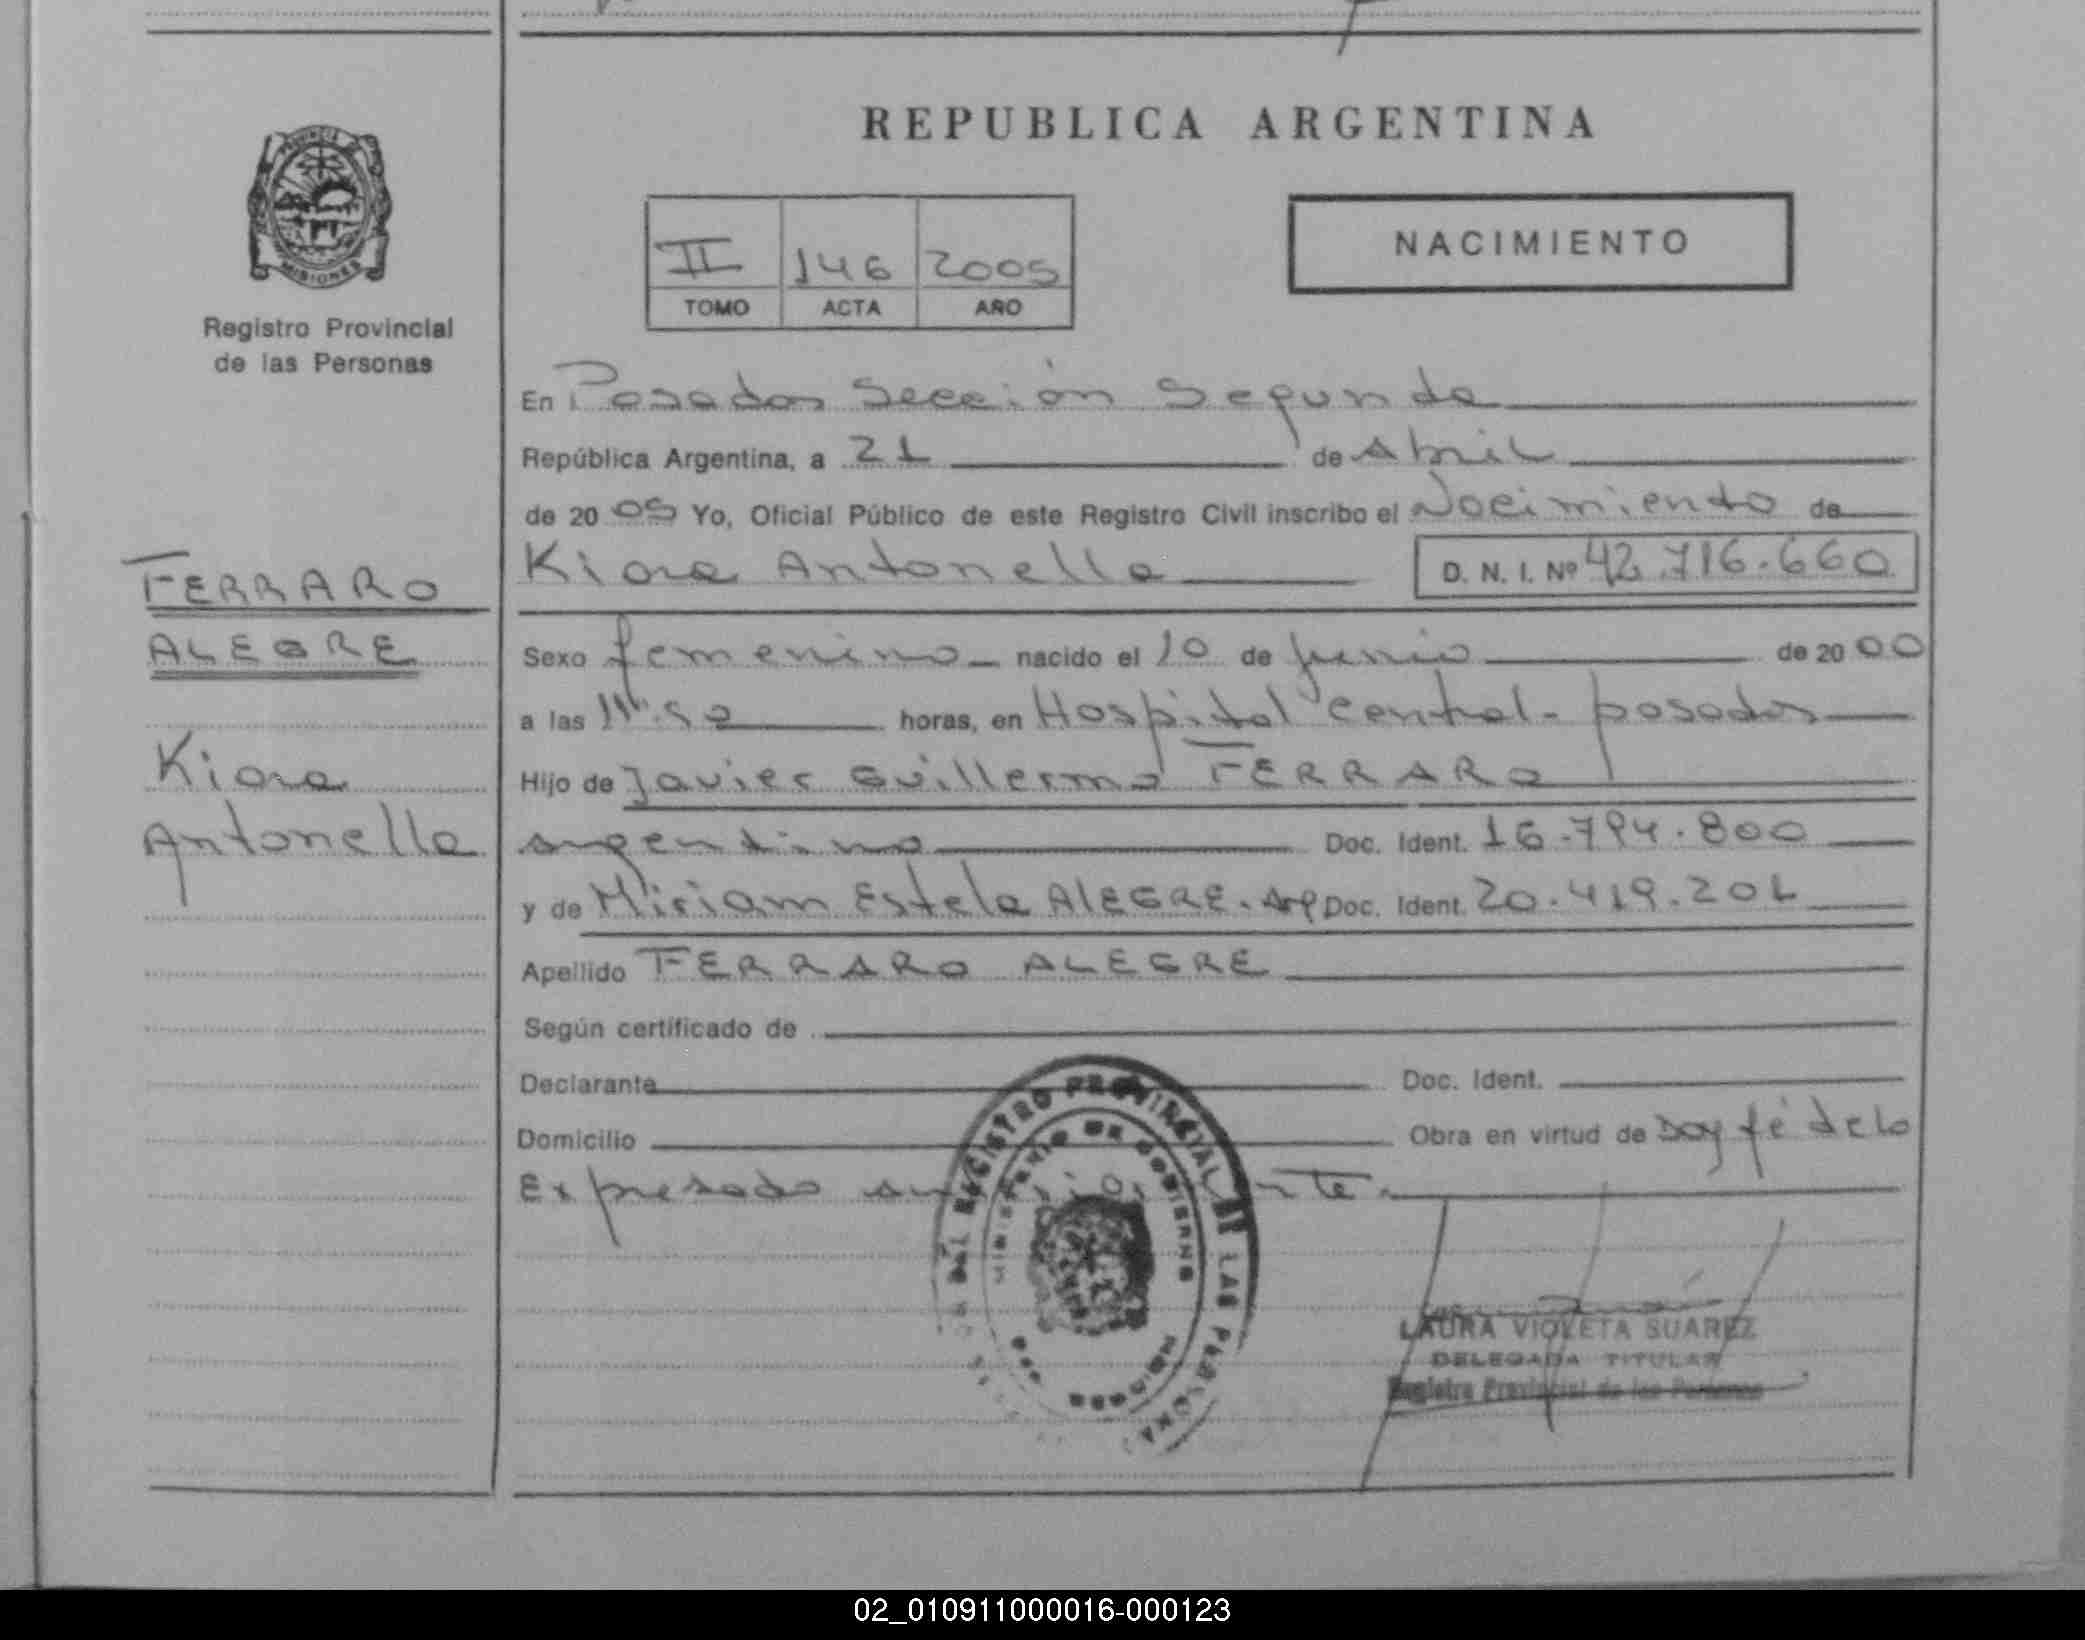 PROVINCIA DE
MISIONES
Registro Provincial
de las Personas
FERRARO
ALEGRE
Kiara
Antonella
REPUBLICA ARGENTINA
II 146 2005
TOMO ACTA AÑO
NACIMIENTO
En Posadas Sección Segunda
República Argentina, a 21 de Abril
de 2005 Yo, Oficial Público de este Registro Civil inscribo el Nacimiento de
Kiara Antonella D. N. I. Nº 42.716.660
Sexo femenino nacido el 10 de Junio de 2000
a las horas, en Hospital Central - Posadas
Hijo de Javier Guillermo FERRARO
argentino Doc. Ident. 16.794.800
y de Miriam Estela ALEGRE. Arg Doc. Ident. 20.419.201
Apellido FERRARO ALEGRE
Según certificado de
Declarante Doc. Ident.
Domicilio Obra en virtud de Doy fé de lo
Expresado
DEL REGISTRO PROVINCIAL DE LAS PERSONAS
MINISTERIO DE GOBIERNO
LAURA VIOLETA SUAREZ
DELEGADA TITULAR
Registro Provincial de las Personas
02_010911000016-000123